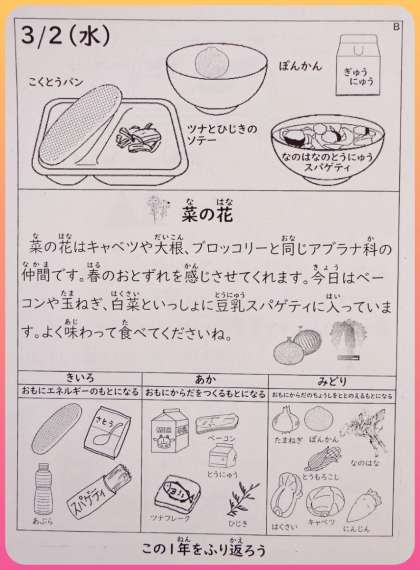 3/2(水)
B
こくとうパン
ぽんかん
ぎゅう
にゅう
ツナとひじきの
ソテー
なのはなのとうにゅう
スパゲティ
な はな
菜の花
な はな だいこん おな か
菜の花はキャベツや大根、ブロッコリーと同じアブラナ科の
なかま はる かん きょう
仲間です。春のおとずれを感じさせてくれます。今日はベー
たま はくさい とうにゅう はい
コンや玉ねぎ、白菜といっしょに豆乳スパゲティに入っていま
あじ た
す。よく味わって食べてくださいね。
きいろ
あか
みどり
おもにエネルギーのもとになる
おもにからだをつくるもとになる
おもにからだのちょうしをととのえるもとになる
さとう
あぶら
スパゲティ
ベーコン
とうにゅう
ツナフレーク
ひじき
たまねぎ
ぽんかん
なのはな
とうもろこし
はくさい
キャベツ
にんじん
ねん かえ
この1年をふり返ろう